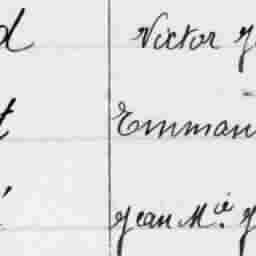 d Victor J
t Emman
Jean M.ie J